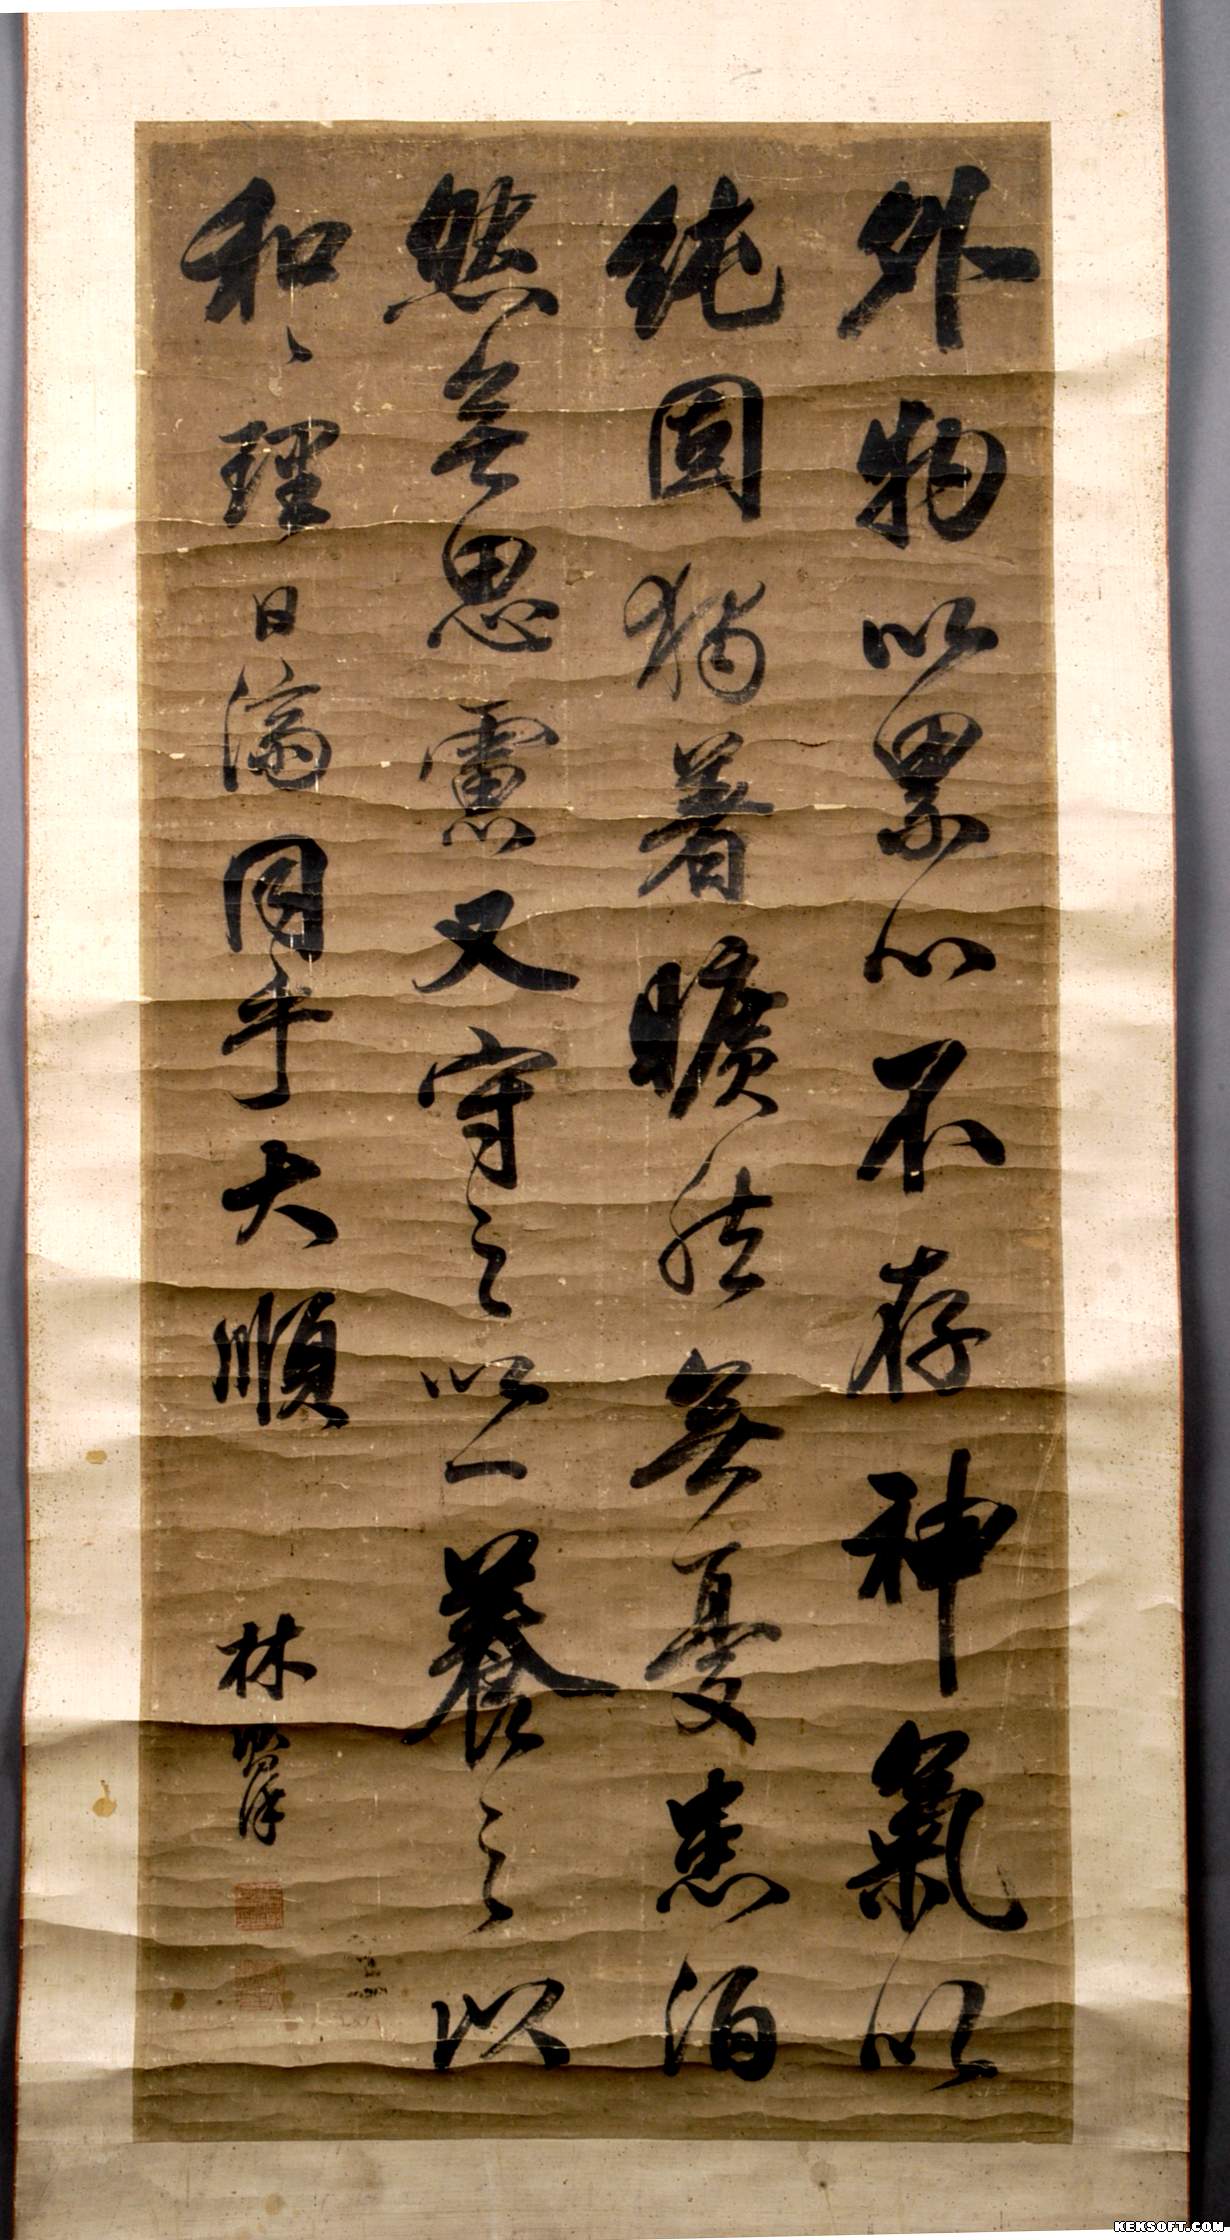 外物以累心不存神氣以
純固獨著曠然無憂患泊
然無思慮又守之以一養之以
和〻理日濟同乎大順
林
KEKSOFT.COM